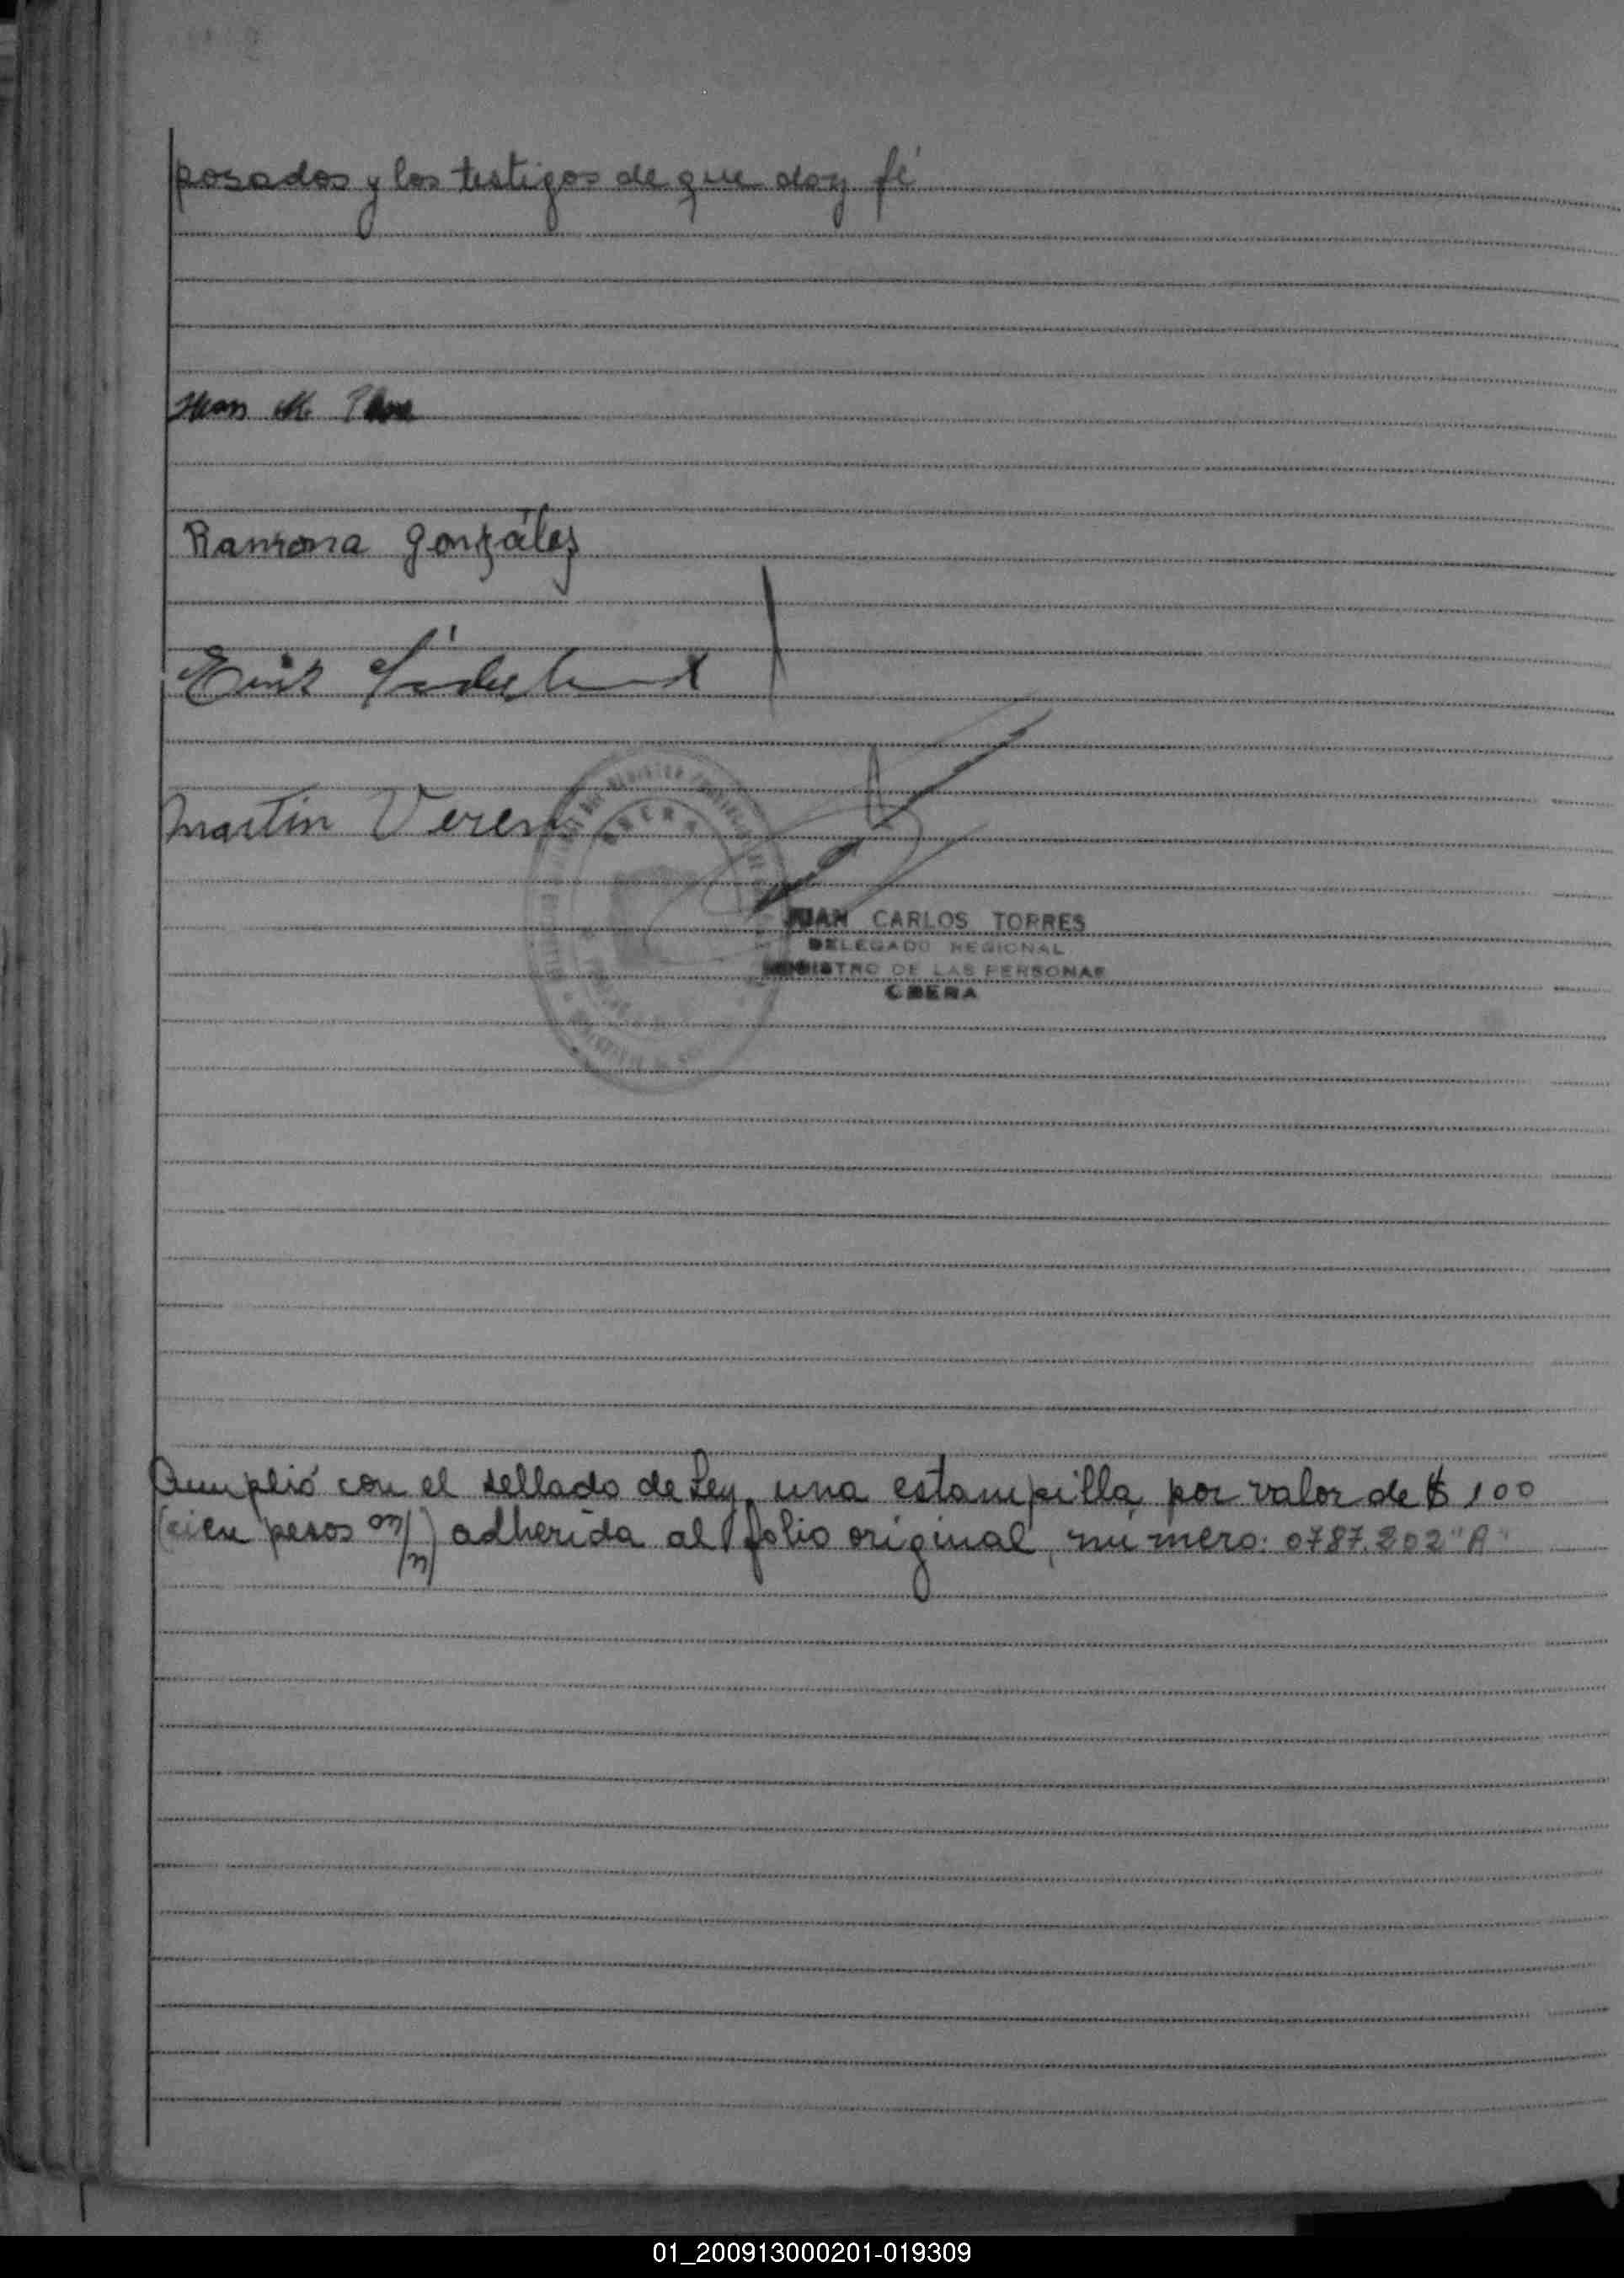 posados y los testigos de que doy fé
Juan
Ramona Gonzáles
Martin Veren
OBERA
JUAN CARLOS TORRES
DELEGADO REGIONAL
REGISTRO DE LAS PERSONAS
OBERA
Cumplió con el sellado de Ley, una estampilla por valor de $ 100
(cien pesos m/n) adherida al folio original, número: 0787.202 "A"
01_200913000201-019309